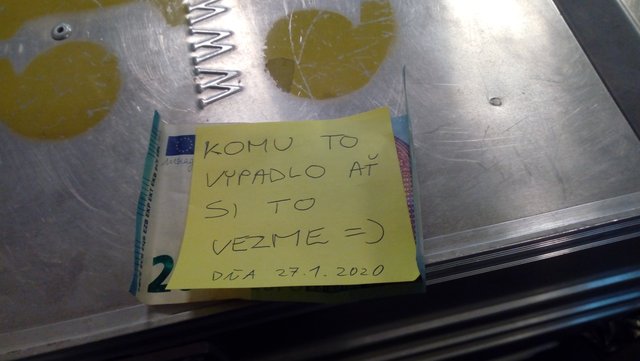 WWW
KOMU TO
VYPADLO AŤ
SI TO
VEZME =)
DŇA 27.1.2020
2